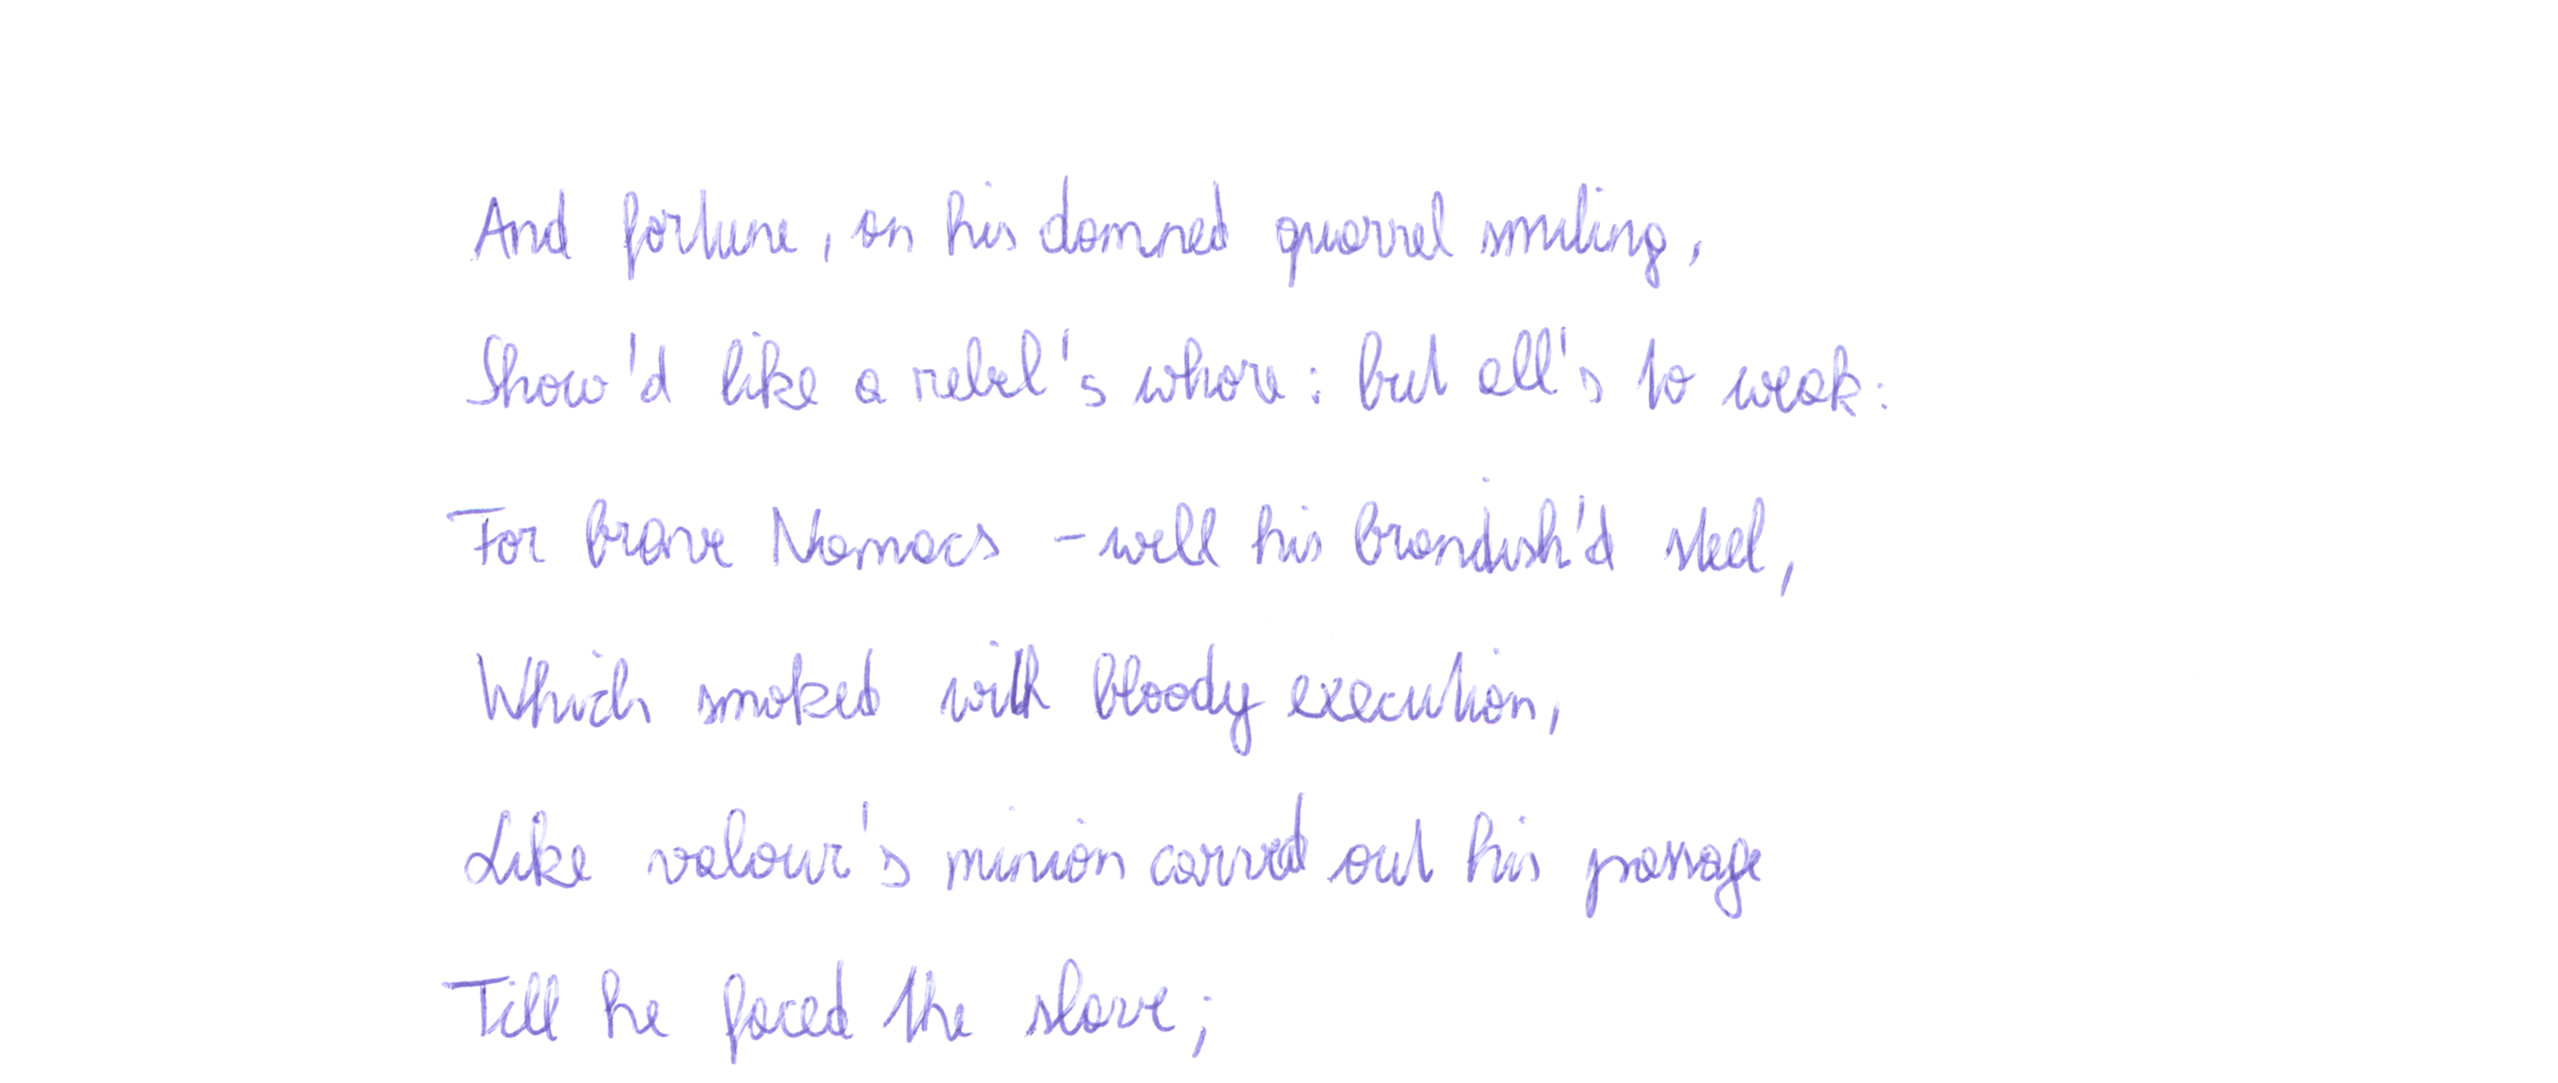 And fortune, on his damned quarrel smiling,
Show'd like a rebel's whore: but all's to weak:
For brave Namacs - well his brandish'd steel,
Which smoked with bloody execution,
Like valour's minion carved out his passage
Till he faced the slave;